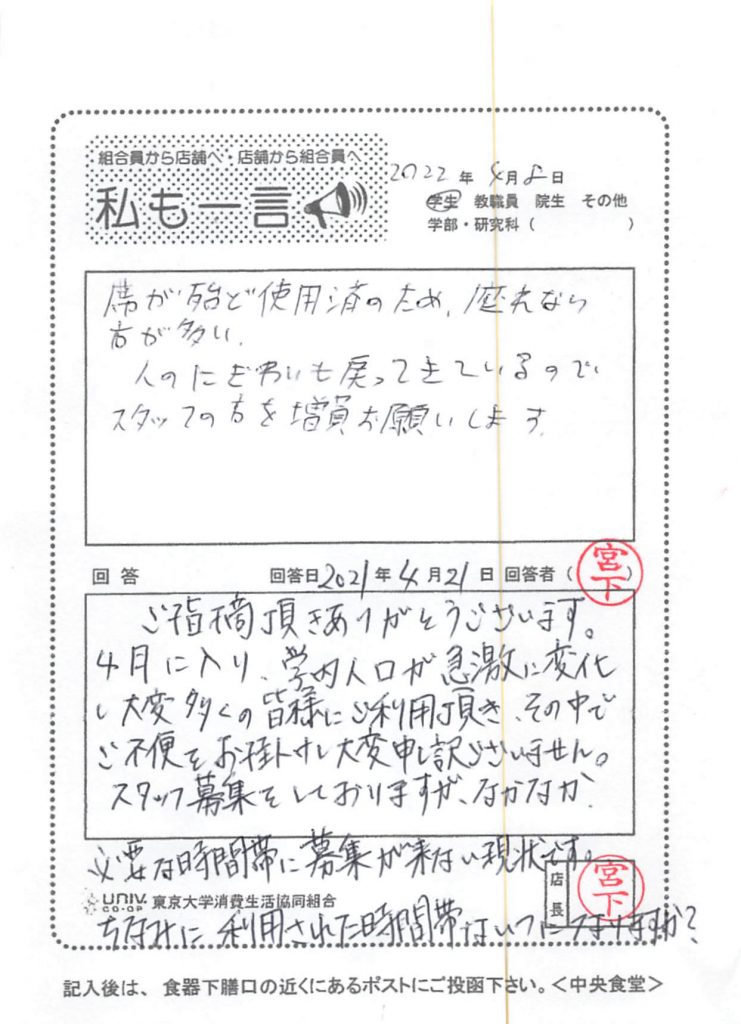 組合員から店舗へ・店舗から組合員へ
私も一言
2022年4月8日
学生 教職員 院生 その他
学部・研究科( )
席が殆ど使用済のため、座れない
方が多い。
人のにぎわいも戻ってきているので、
スタッフの方を増員お願いします。
回答 回答日2021年4月21日 回答者(宮下)
ご指摘頂きありがとうございます。
4月に入り、学内人口が急激に変化
し大変多くの皆様にご利用頂き、その中で
ご不便をお掛けし大変申し訳ございません。
スタッフ募集をしておりますが、なかなか、
必要な時間帯に募集が来ない現状です。
店長 宮下
UNIV. CO-OP 東京大学消費生活協同組合
ちなみに利用された時間帯はいつになりますか?
記入後は、食器下膳口の近くにあるポストにご投函下さい。<中央食堂>